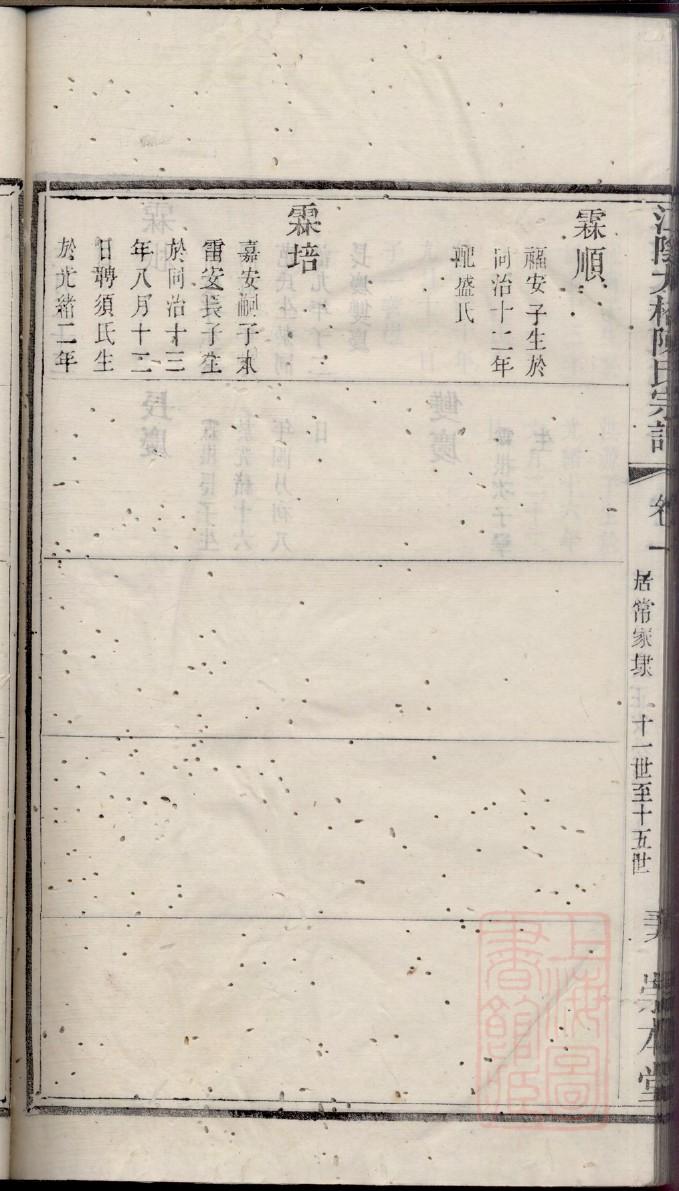 江陰大橋陳氏宗譜
卷一
居常家埭
十一世至十五世
崇本堂
霖順
福安子生於
同治十二年
配盛氏
霖培
嘉安嗣子本
雷安長子生
於同治十三
年八月十二
日聘須氏生
於光緒二年
上海圖
書館藏